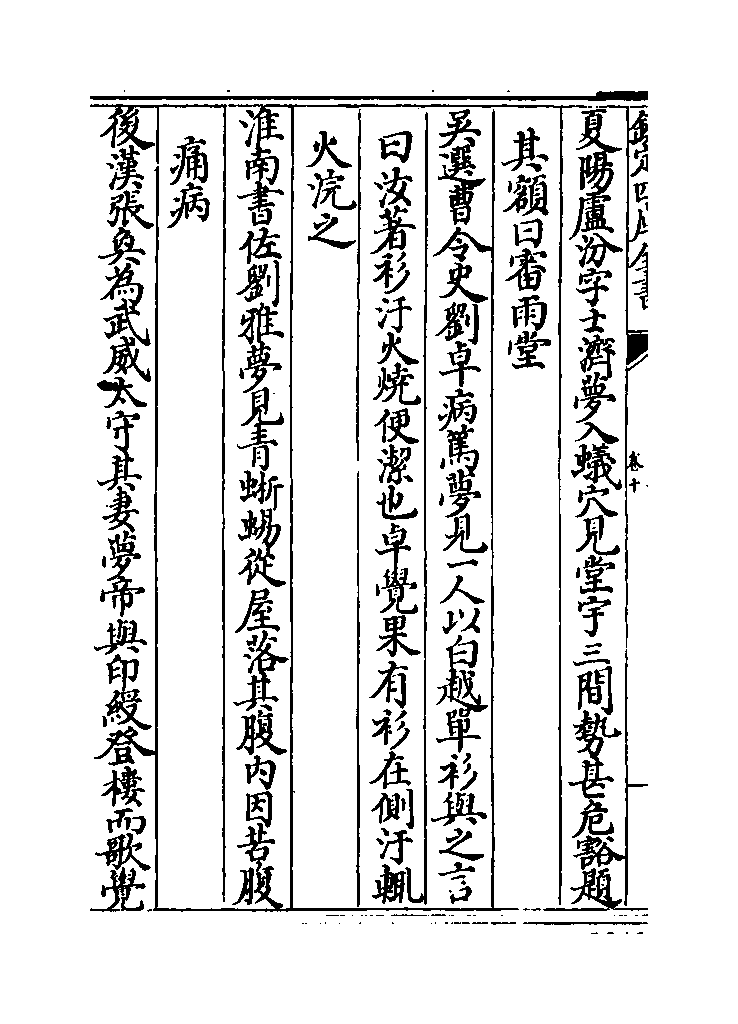 欽定四庫全書
卷十
夏陽盧汾字士濟夢入蟻穴見堂宇三間勢甚危豁題
其額曰審雨堂
吳選曹令史劉卓病篤夢見一人以白越單衫與之言
曰汝著衫汙火燒便潔也卓覺果有衫在側汙輒
火浣之
淮南書佐劉雅夢見青蜥蜴從屋落其腹内因苦腹
痛病
後漢張奐為武威太守其妻夢帝與印綬登樓而歌覺